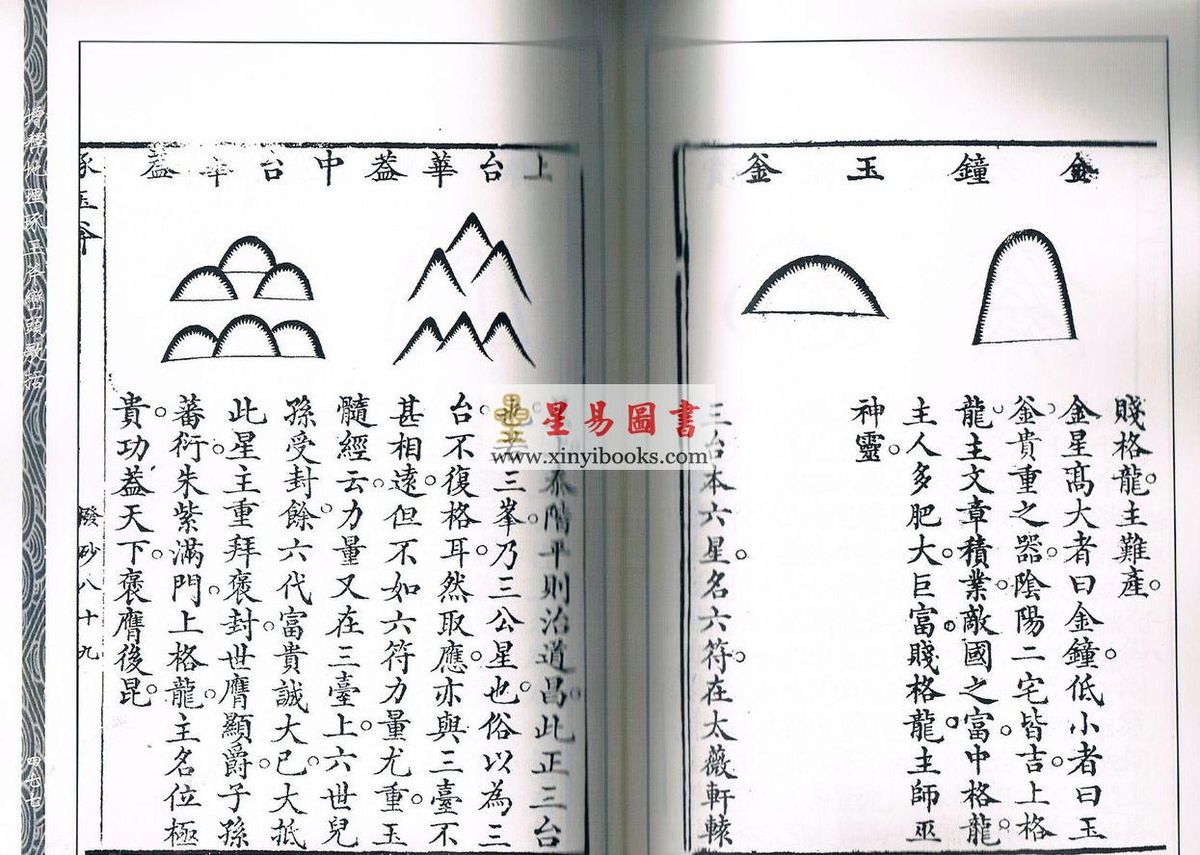 金鐘玉釜
賤格龍。主難產。
金星高大者曰金鐘。低小者曰玉
釜。貴重之器。陰陽二宅皆吉。上格
龍。主文章積業。敵國之富。中格龍。
主人多肥大。巨富。賤格龍。主師巫
神靈。
三台本六星。名六符。在太薇軒轅
上台華葢中台華葢
泰階平則治道昌。此正三台
三峯。乃三公星也。俗以為三
台不復格耳。然取應。亦與三臺不
甚相遠。但不如六符力量尤重。玉
髓經云。力量又在三臺上。六世兒
孫受封。餘六代富貴誠大已。大抵
此星主重拜褒封。世膺顯爵。子孫
蕃衍。朱紫滿門。上格龍。主名位極
貴。功葢天下。褒膺後昆。
琢玉斧
撥砂八十九
地理琢玉斧巒頭歌括
四七七
星易圖書
www.xinyibooks.com